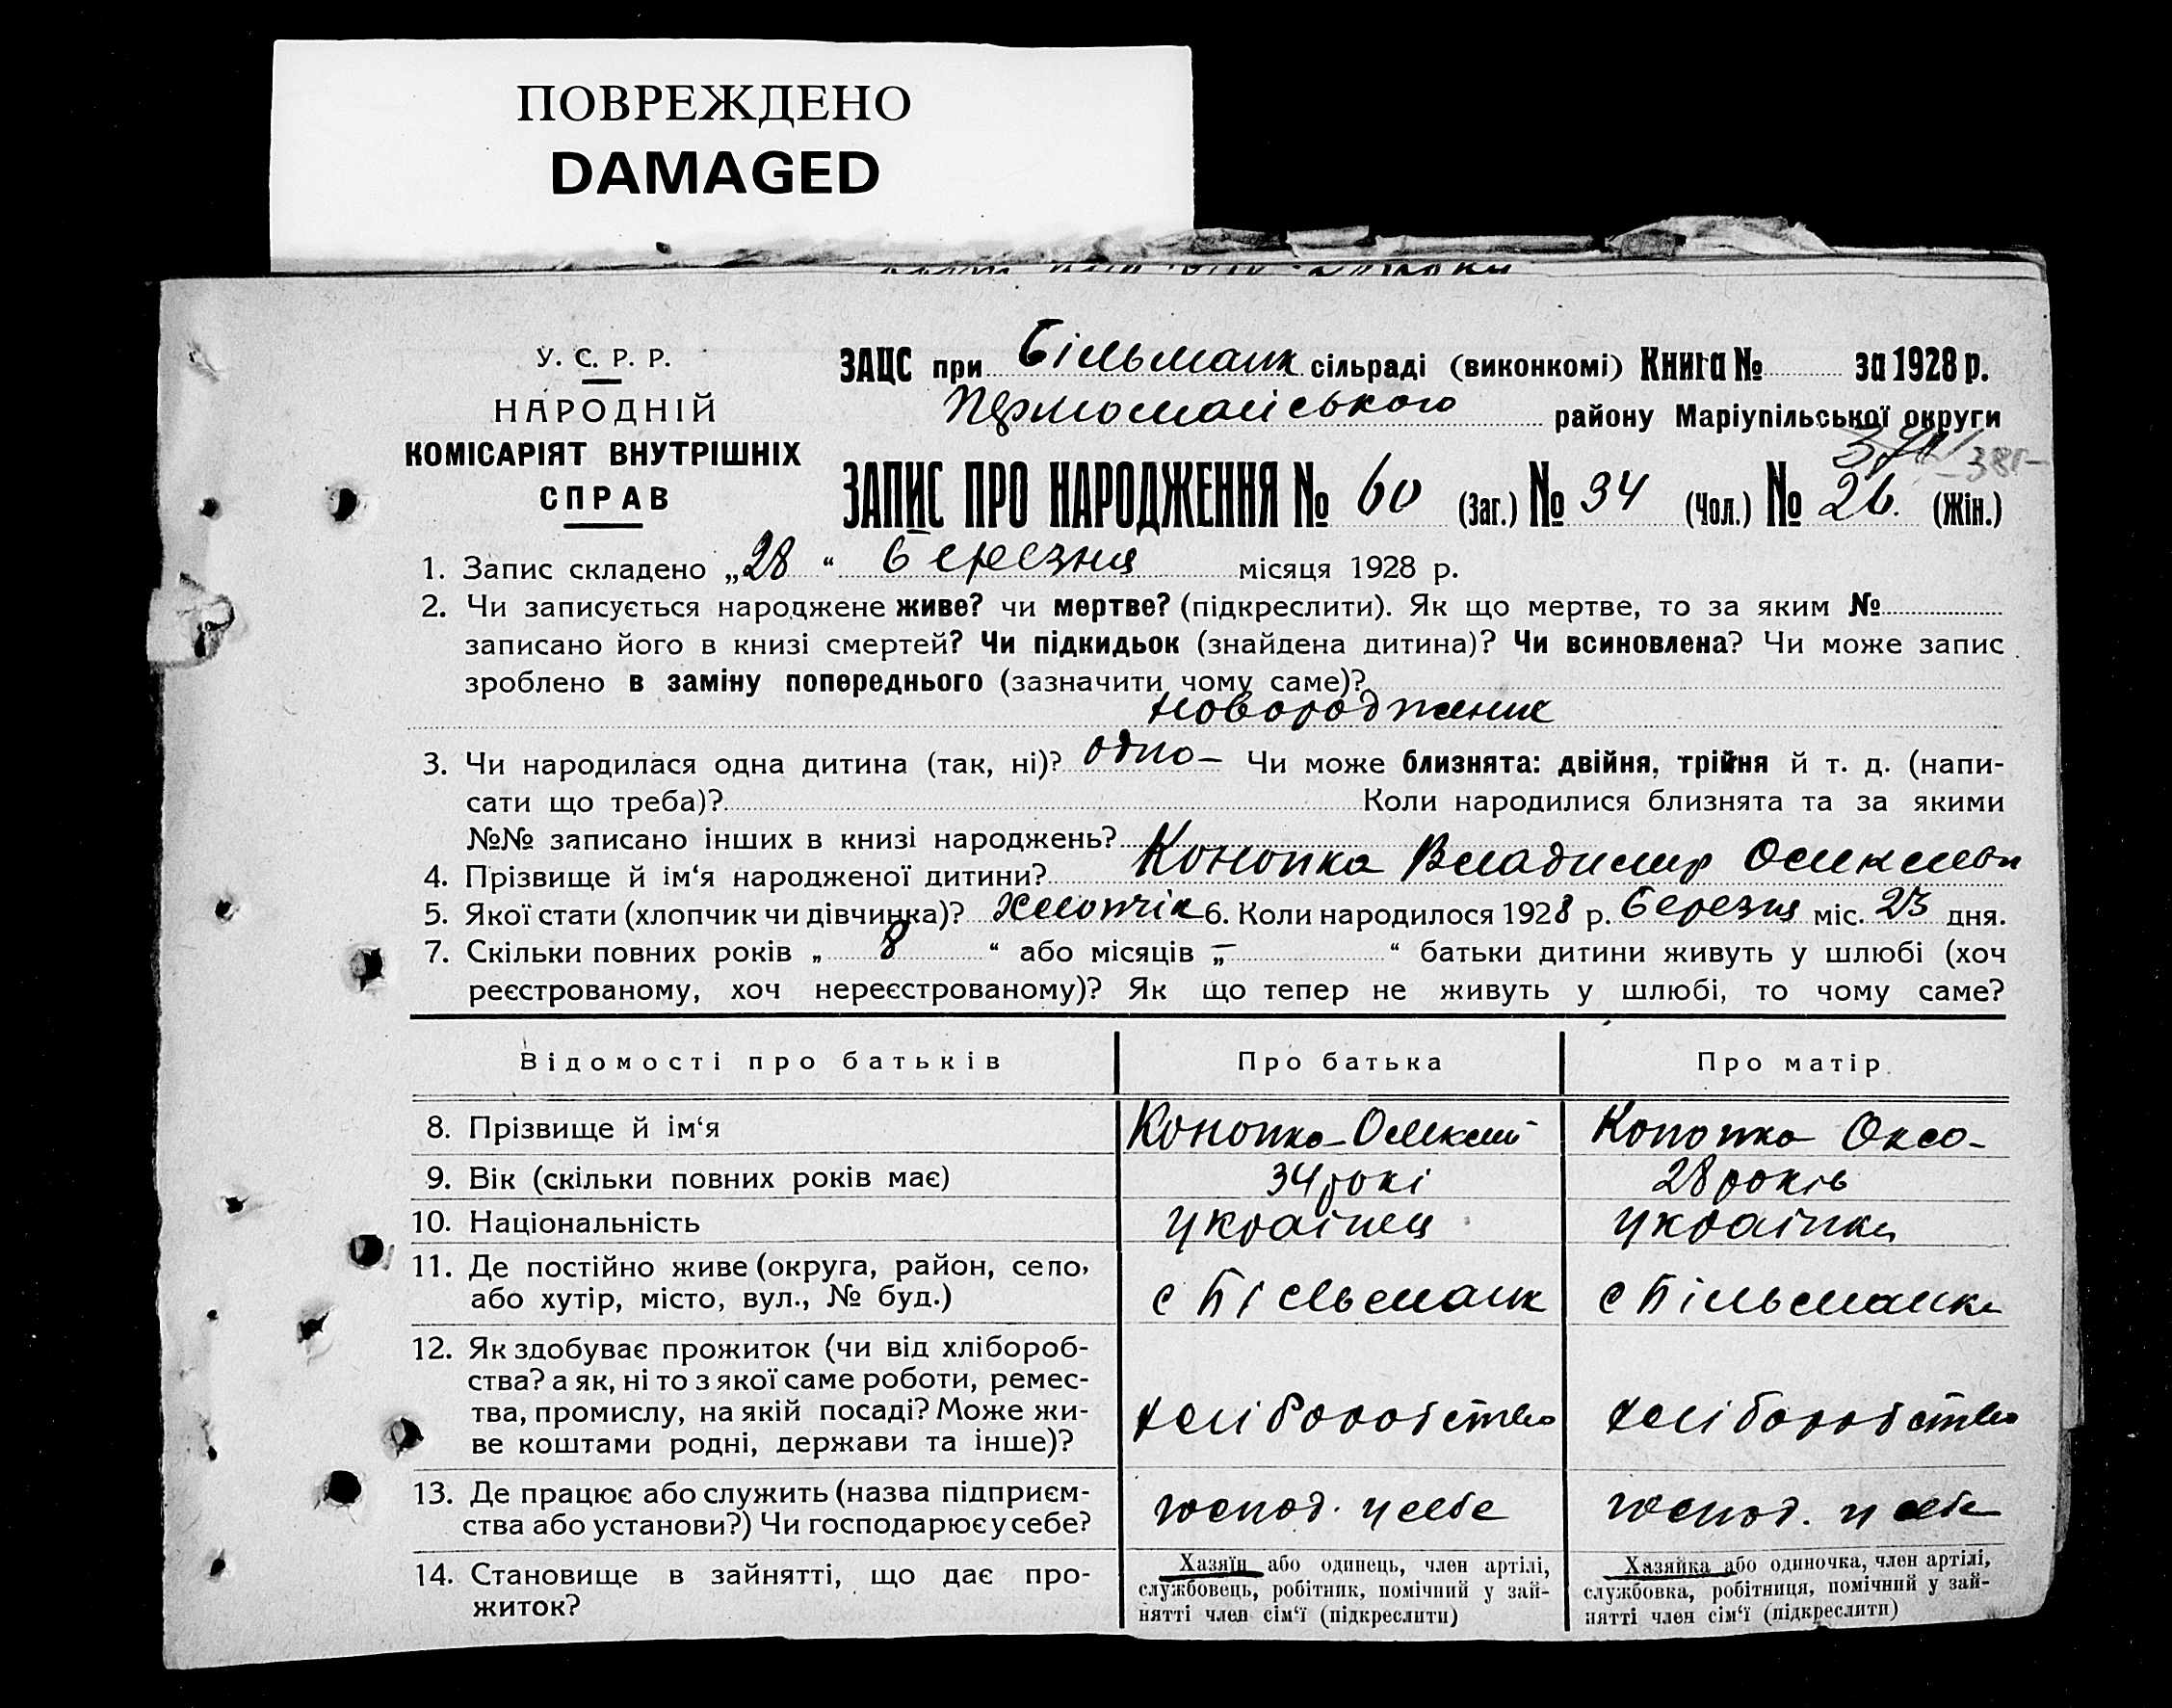 ПОВРЕЖДЕНО
DAMAGED
У. С. Р. Р.
НАРОДНІЙ
КОМІСАРІЯТ ВНУТРІШНІХ
СПРАВ
ЗАЦС при Більманк сільраді (виконкомі) Книга № за 1928 р.
Першомайського району Маріупільської округи
ЗАПИС ПРО НАРОДЖЕННЯ № 60 (Заг.) № 34 (Чол.) № 26. (Жін.)
1. Запис складено „28“ березня місяця 1928 р.
2. Чи записується народжене живе? чи мертве? (підкреслити). Як що мертве, то за яким №
записано його в книзі смертей? Чи підкидьок (знайдена дитина)? Чи всиновлена? Чи може запис
зроблено в заміну попереднього (зазначити чому саме)?
новорождение
3. Чи народилася одна дитина (так, ні)? одно – Чи може близнята: двійня, трійня й т. д. (напи-
сати що треба)? Коли народилися близнята та за якими
№№ записано інших в книзі народжень?
4. Прізвище й ім‘я народженої дитини? Конопка Владимир
5. Якої стати (хлопчик чи дівчинка)? хлопчік 6. Коли народилося 1928 р. березня міс. 23 дня.
7. Скільки повних років „ 8 “ або місяців „ – “ батьки дитини живуть у шлюбі (хоч
реєстрованому, хоч нереєстрованому)? Як що тепер не живуть у шлюбі, то чому саме?
Відомості про батьків Про батька Про матір
8. Прізвище й ім‘я Конопка Олексій Конопка Оксо-
9. Вік (скільки повних років має) 34 рокі 28 років
10. Національність Украінец Украінка
11. Де постійно живе (округа, район, село,
або хутір, місто, вул., № буд.) с Більманк с Більманка
12. Як здобуває прожиток (чи від хлібороб-
ства? а як, ні то з якої саме роботи, ремес-
тва, промислу, на якій посаді? Може жи-
ве коштами родні, держави та інше)?
хліборобство хліборобство
13. Де працює або служить (назва підприєм-
ства або установи?) Чи господарює у себе?
господ. у себе господ. у себе
14. Становище в зайнятті, що дає про-
житок?
Хазяїн або одинець, член артілі,
службовець, робітник, помічний у зай-
нятті член сім‘ї (підкреслити)
Хазяйка або одиночка, член артілі,
службовка, робітниця, помічний у зай-
нятті член сім‘ї (підкреслити)